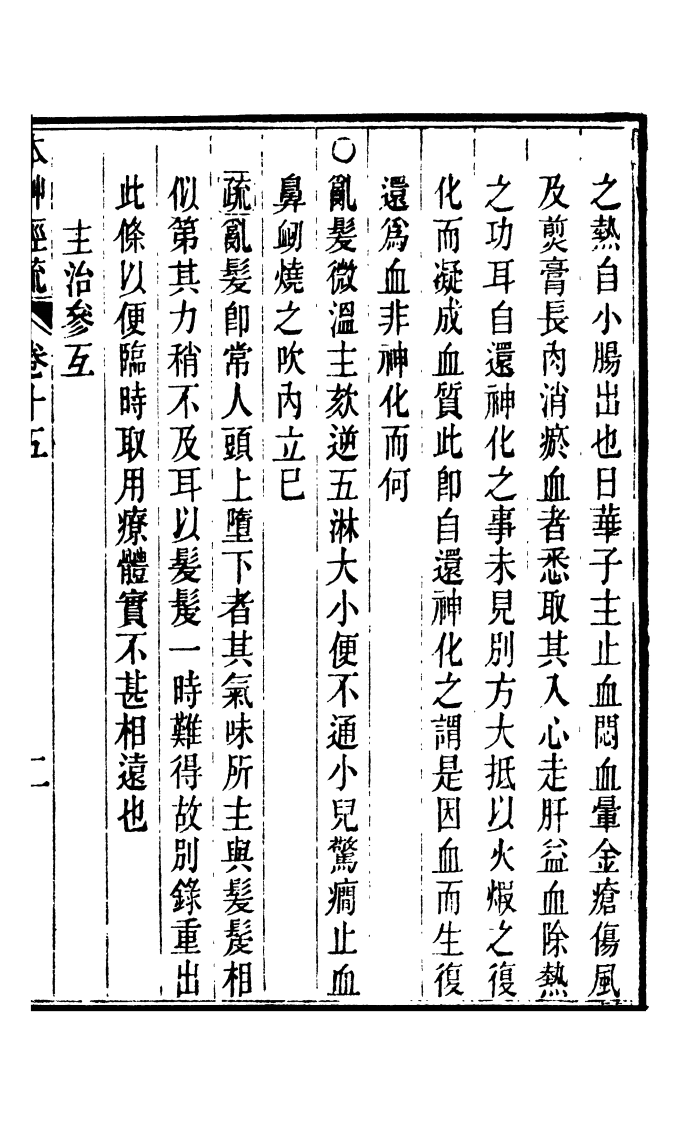 之熱自小腸出也日華子主止血悶血暈金瘡傷風
及煎膏長肉消瘀血者悉取其入心走肝益血除熱
之功耳自還神化之事未見別方大抵以火煅之復
化而凝成血質此卽自還神化之謂是因血而生復
還爲血非神化而何
〇亂髮微溫主欬逆五淋大小便不通小兒驚癎止血
鼻衂燒之吹內立巳
疏亂髮卽常人頭上墮下者其氣味所主與髮髲相
似第其力稍不及耳以髮髲一時難得故別錄重出
此條以便臨時取用療體實不甚相遠也
主治參互
本艸經疏 卷十五 二